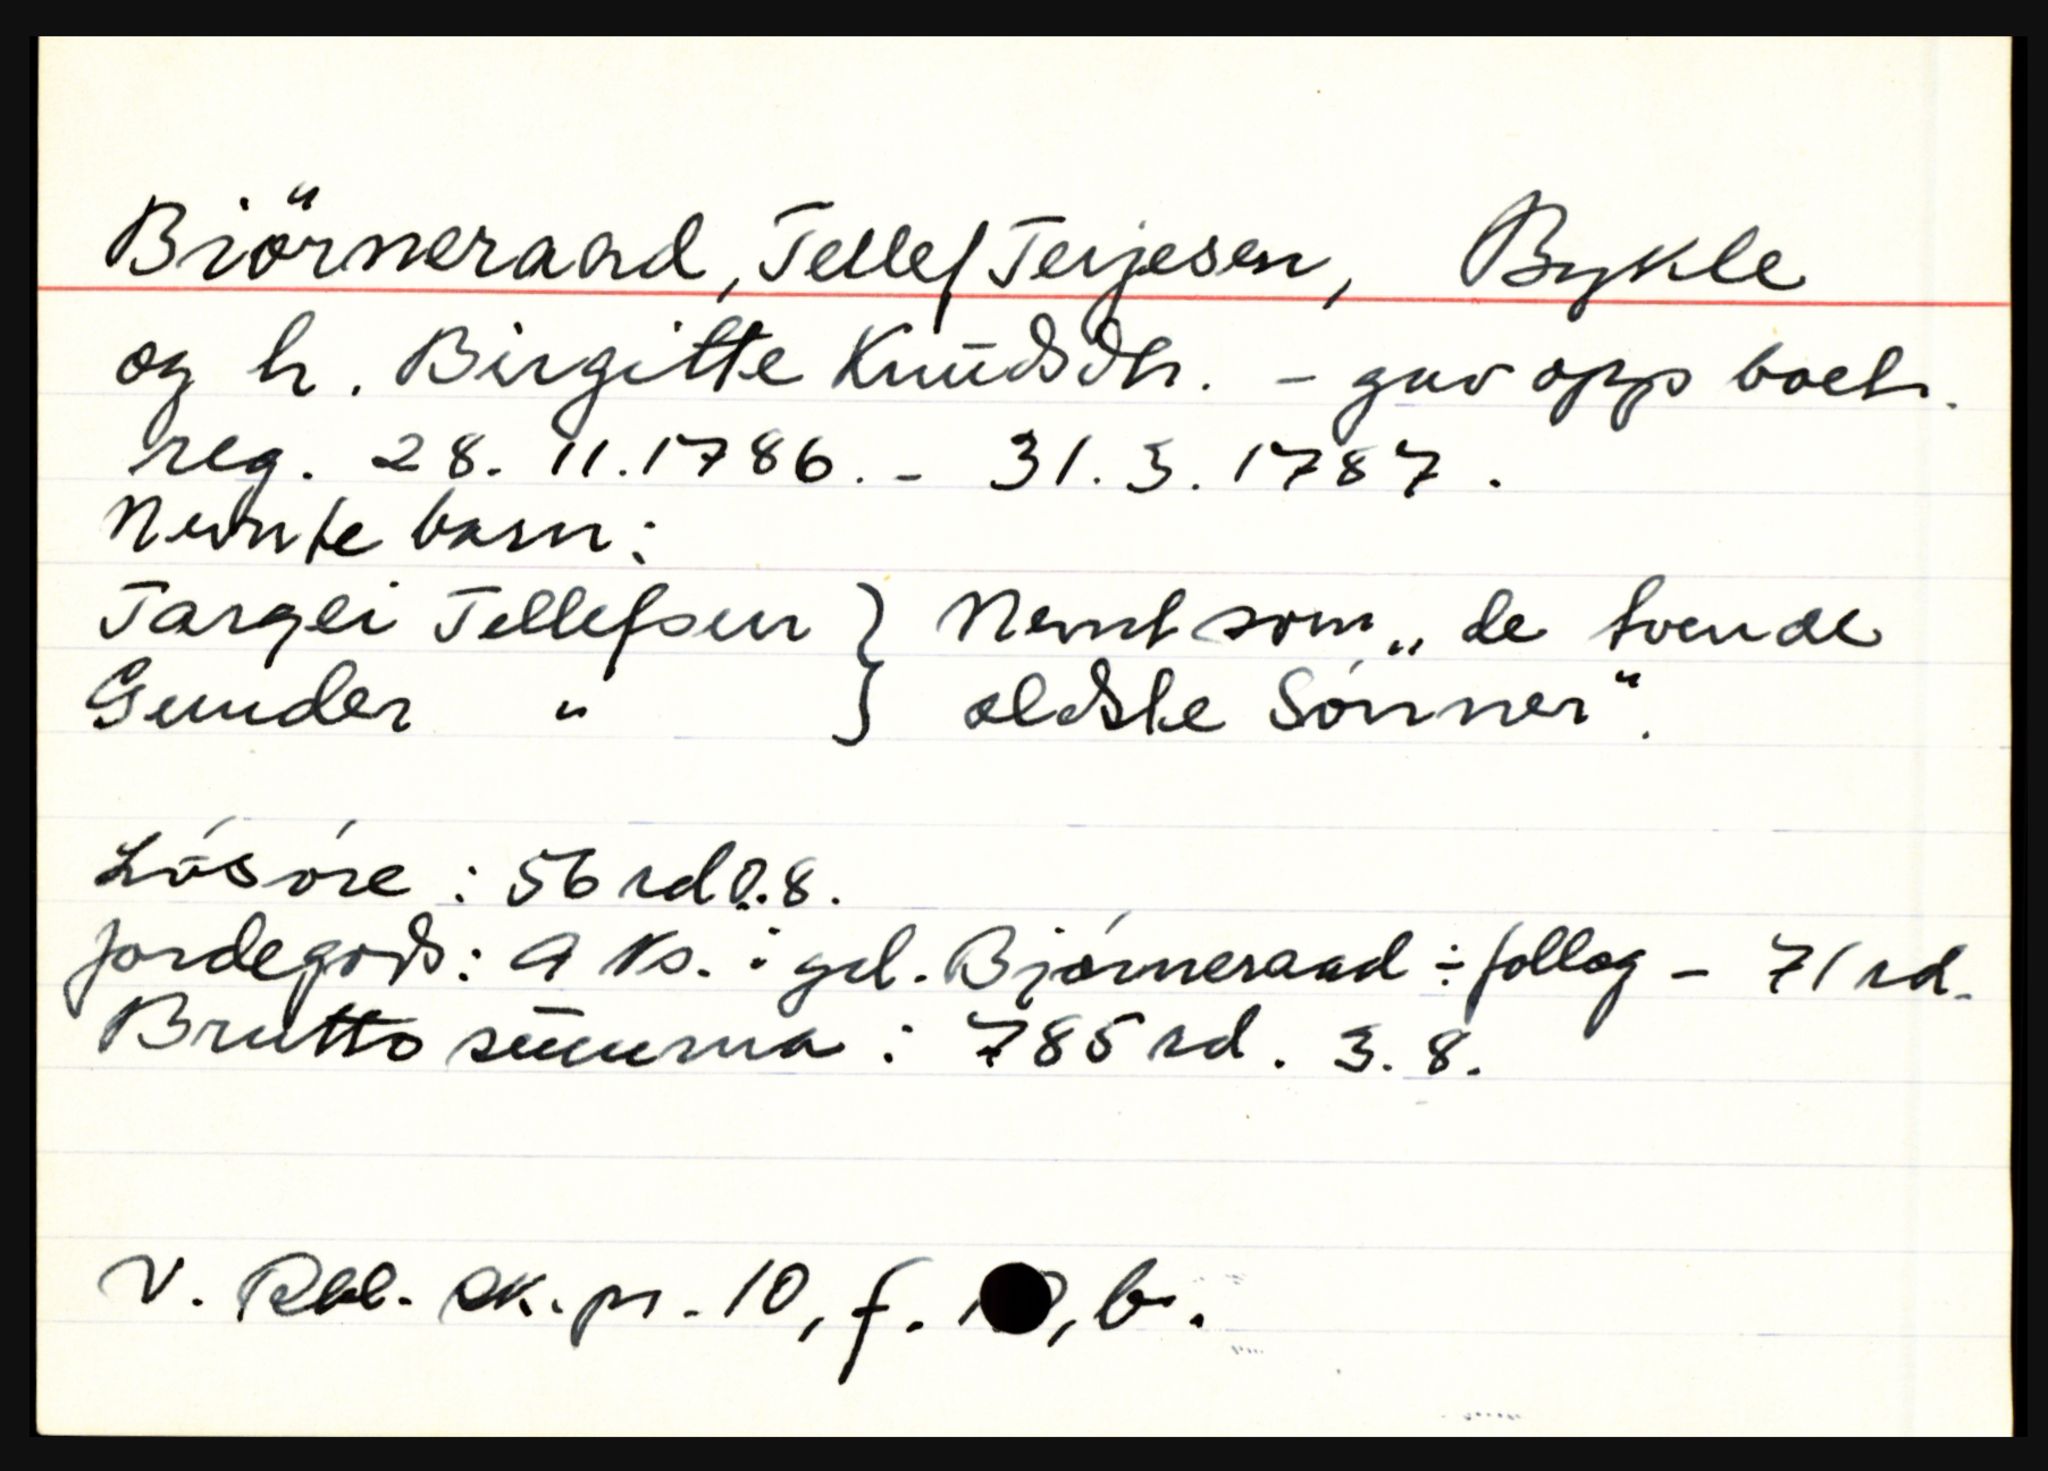 Biörneraad, Tellef Terjesen, Bykle
og h. Birgitte Knudsdtr. – gav opp boet.
reg. 28. 11. 1786. – 31. 3. 1787.
Nevnte barn:
Targei Tellefsen } Nevnt som „de tvende
Gunder " } ældste Sønner".
Løsøre: 56 rd 0.8.
Jordegods: 9 ks. i gd. Bjørneraad ÷ follog – 71 rd.
Brutto summa: 785 rd. 3. 8.
V. Rbl. sk. pr. 10, f. , b.